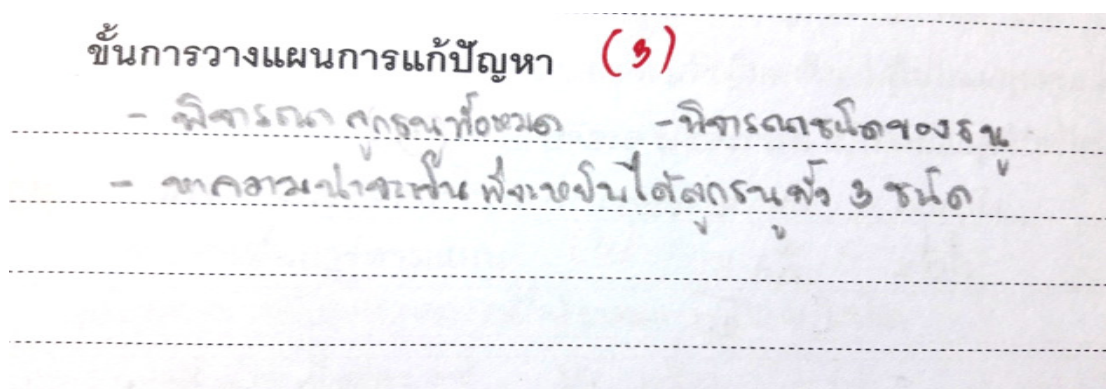 ขั้นการวางแผนการแก้ปัญหา (3)
- พิจารณา ลูกธนูทั้งหมด - พิจารณาชนิดของธนู
- หาความน่าจะเป็น ที่จะหยิบได้ลูกธนูทั้ง 3 ชนิด